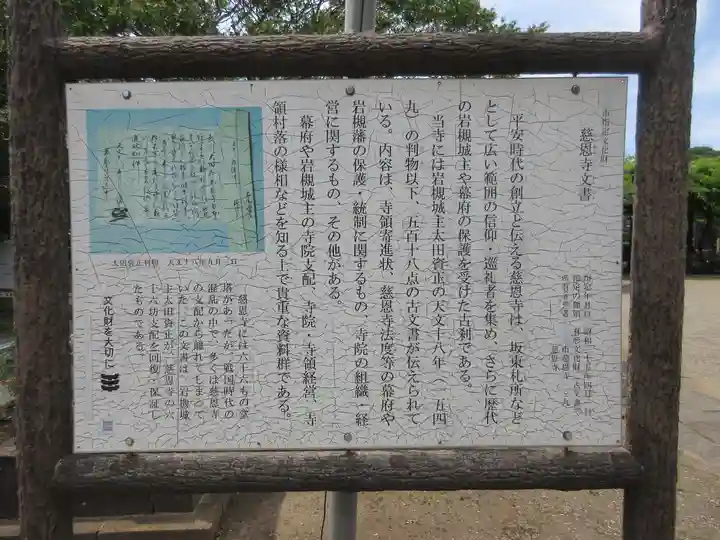 市指定文化財
慈恩寺文書
平安時代の創立と伝える慈恩寺は、坂東札所など
として広い範囲の信仰・巡礼者を集め、さらに歴代
の岩槻城主や幕府の保護を受けた古刹である。
当寺には岩槻城主太田資正の天文十八年（一五四
九）の判物以下、五百十八点の古文書が伝えられて
いる。内容は、寺領寄進状、慈恩寺法度等の幕府や
岩槻藩の保護・統制に関するもの、寺院の組織・経
営に関するもの、その他がある。
幕府や岩槻城主の寺院支配、寺院・寺領経営、寺
領村落の様相などを知る上で貴重な資料群である。
太田資正判物 天文十八年九月三日
慈恩寺には六十六もの堂
塔があったが、戦国時代の
混乱の中で、多くは慈恩寺
の支配から離れてしまって
いた。この文書は、岩槻城
主太田資正が、慈恩寺の六
十六坊支配を回復・保証し
たものである。
文化財を大切に